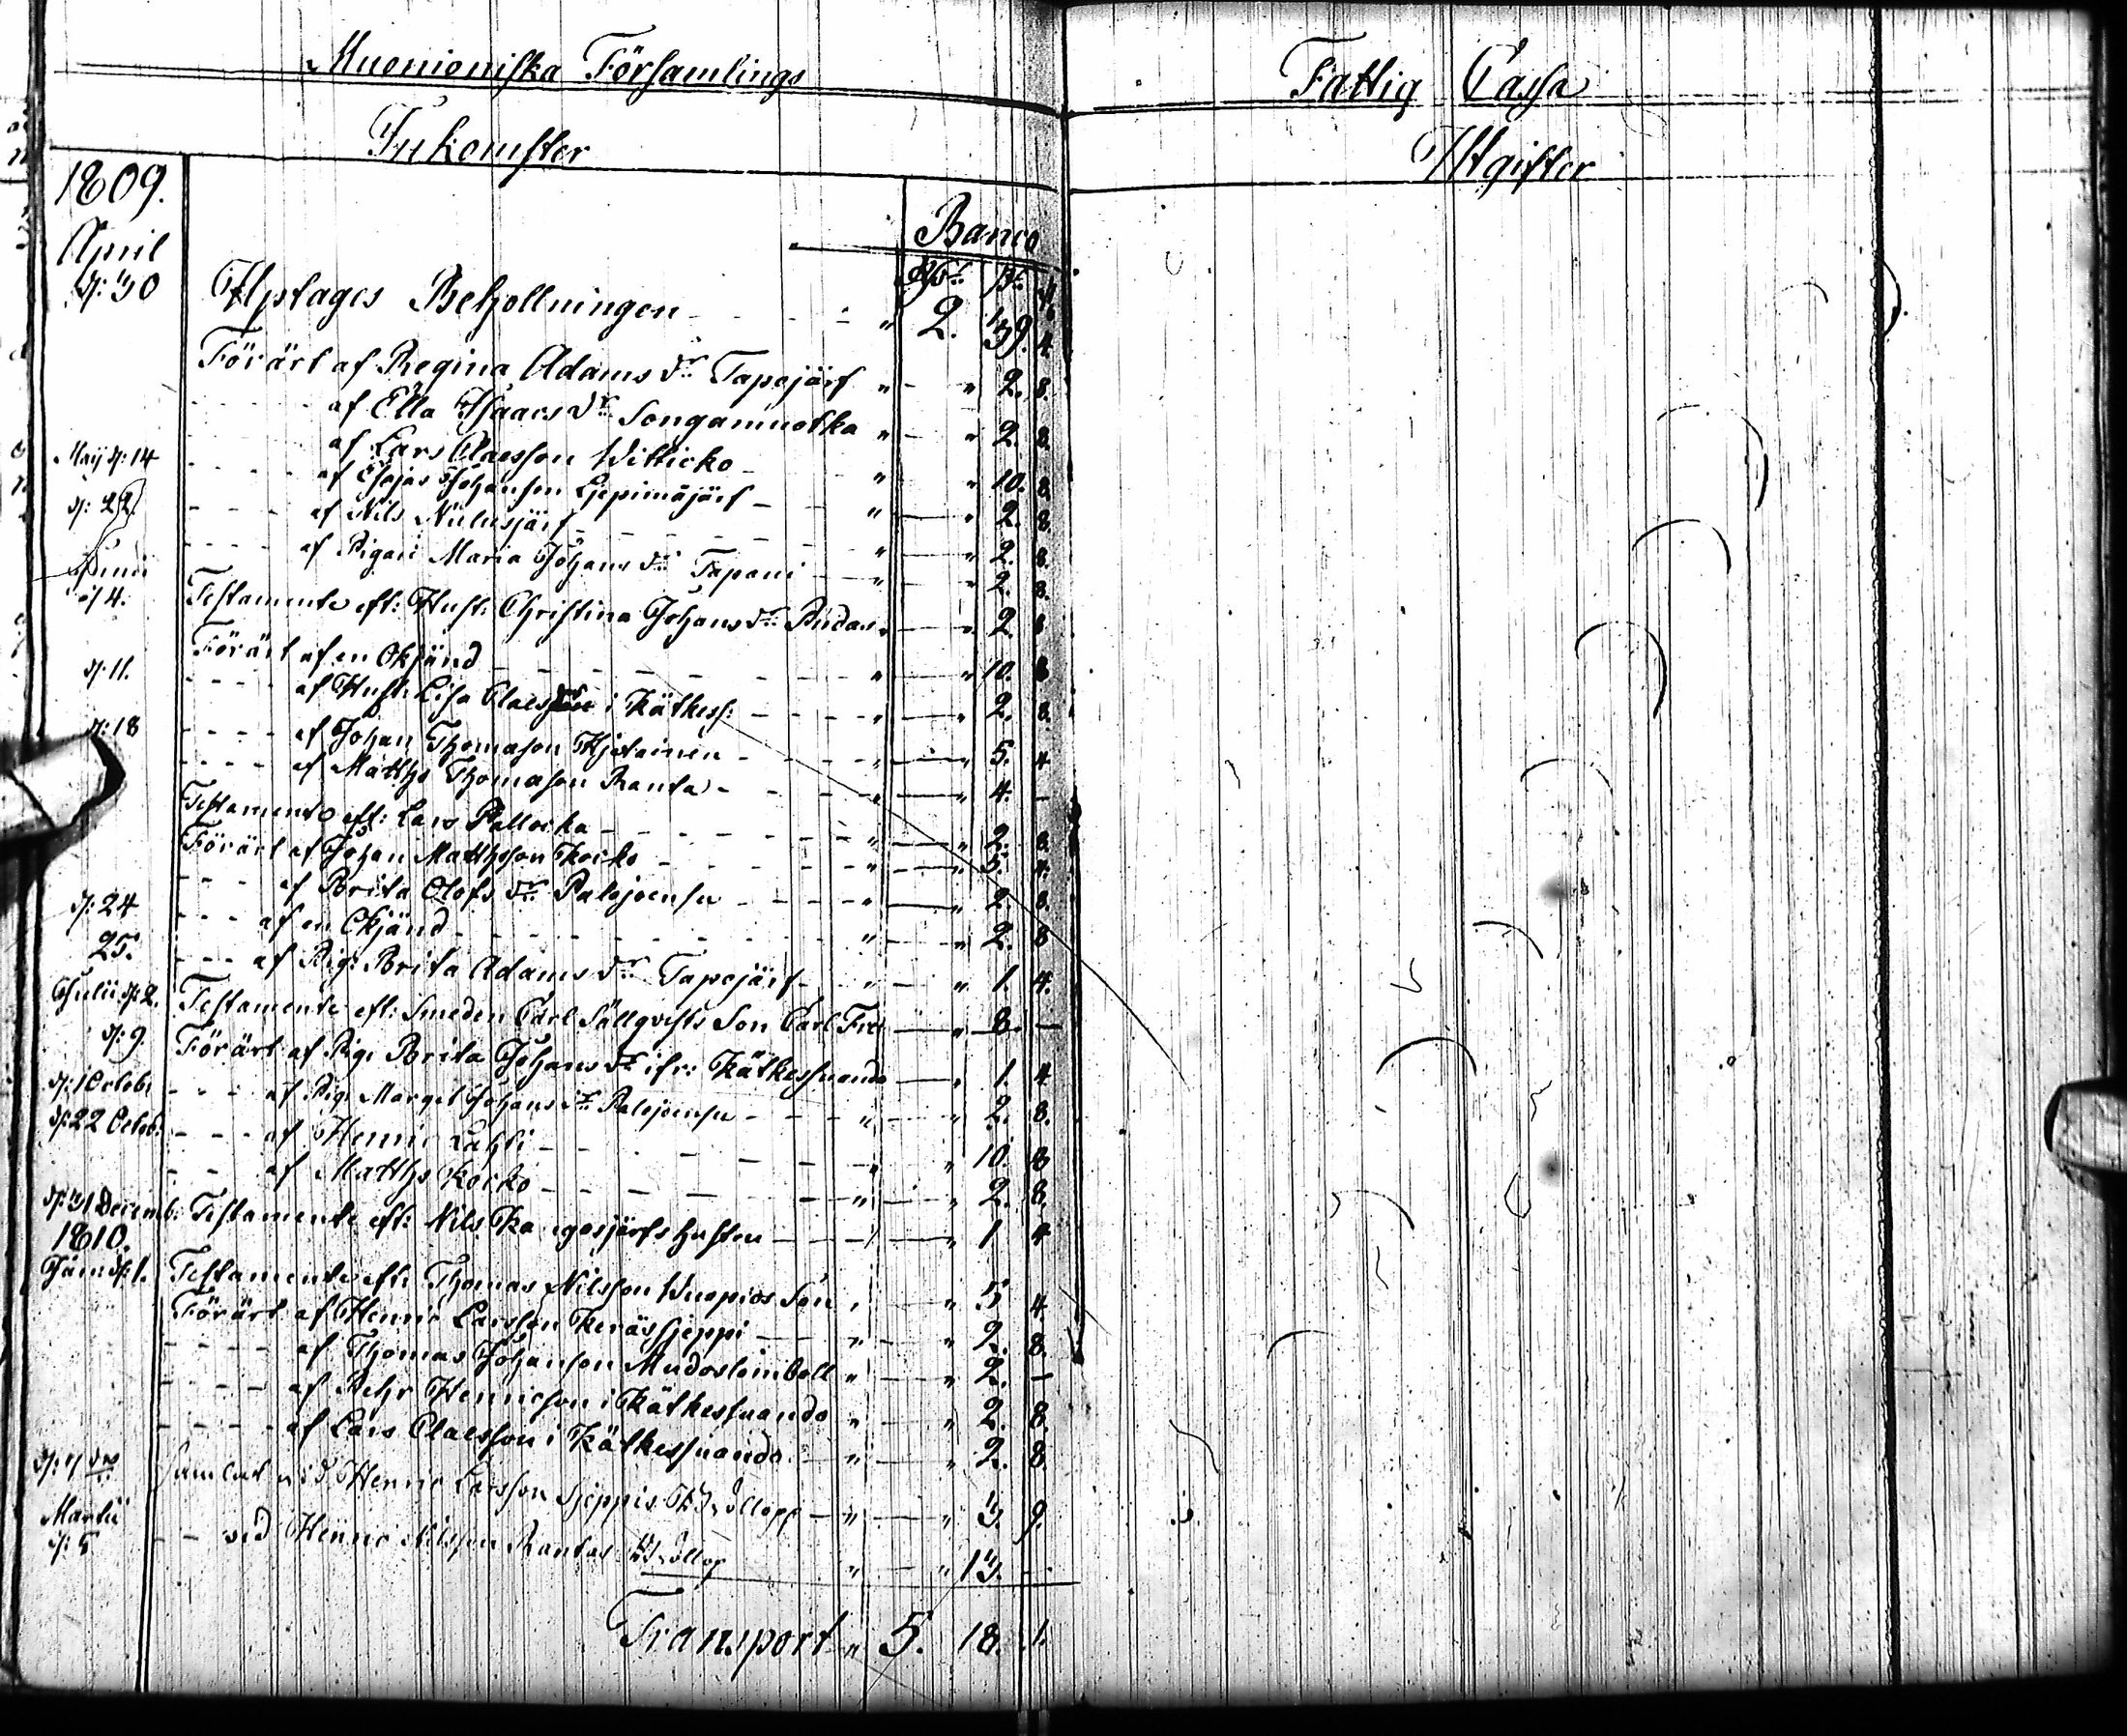 Muonioniska Församlings
Inkomster
1809.
Banco
April
d: 30 Uptages Behollningen 2. 39. 4
Förärt af Regina Adams dr Tapojärf " - " 2. 8.
af Ella Isaacs dr Songamuotka " - " 2. 8.
af Lars Claesson Witticko " 10. 8.
Maij d: 14 af Esajas Johanson Liepimäjärf " 2. 8.
d: 22 af Nils Niilusjärf " 2. 8.
af Pigan Maria Johans dr Tapani " 2. 8.
Junii
d 4. Testamente eft: Hust: Christina Johans dr Rudas " 2. 8
Förärt af en Okjänd " 10. 8
d: 11. af Hust: Lisa Claes i Kätkess: " 2. 8.
d: 18 af Johan Thomason Hjetainen " 5. 4
af Matths Thomason Ranta " 4. -
Testamente eft: Lars Pallocka " 2. 8.
Förärt af Johan Matthsson Kocko " 5. 4.
af Brita Olofs dr Palojoensu " 2. 8.
d: 24 af en Okjänd " 2. 8
25. af Pig: Brita Adams dr Tapojärf " 1. 4.
Julii d: 2. Testamente eft: Smeden Carl Sällqvists Son Carl Fred " 8. -
d: 9. Förärt af Pig: Brita Johans dr ifr: Kätkessuando " 1. 4
d: 1 Octob: af Pig: Marget Johans dr Palojoensu " 2. 8.
d: 22 Octob: af Henric Lahti " 10. 8
af Matths Kocko " 2. 8.
d: 31 Decemb: Testamente eft: Nils Kangosjärfs hustru " 1 4
1810.
Jan: d: 1. Testamente eft: Thomas Nilsson Wuopios Son " 5 4
Förärt af Henric Larsson KeräsSieppi " 2. 8.
af Thomas Johanson Mudoslomboll " 2. -
af Pehr Henricson i Kätkessuando " 2. 8.
af Lars Claesson i Kätkessuando " 2. 8.
Samlat vid Henric Larsson Sieppis 3. 9.
Martii
d: 5 vid Henric Nilsson Rantas 13. -
Transport " 5. 18. 1.
Fattig Cassa
Utgifter